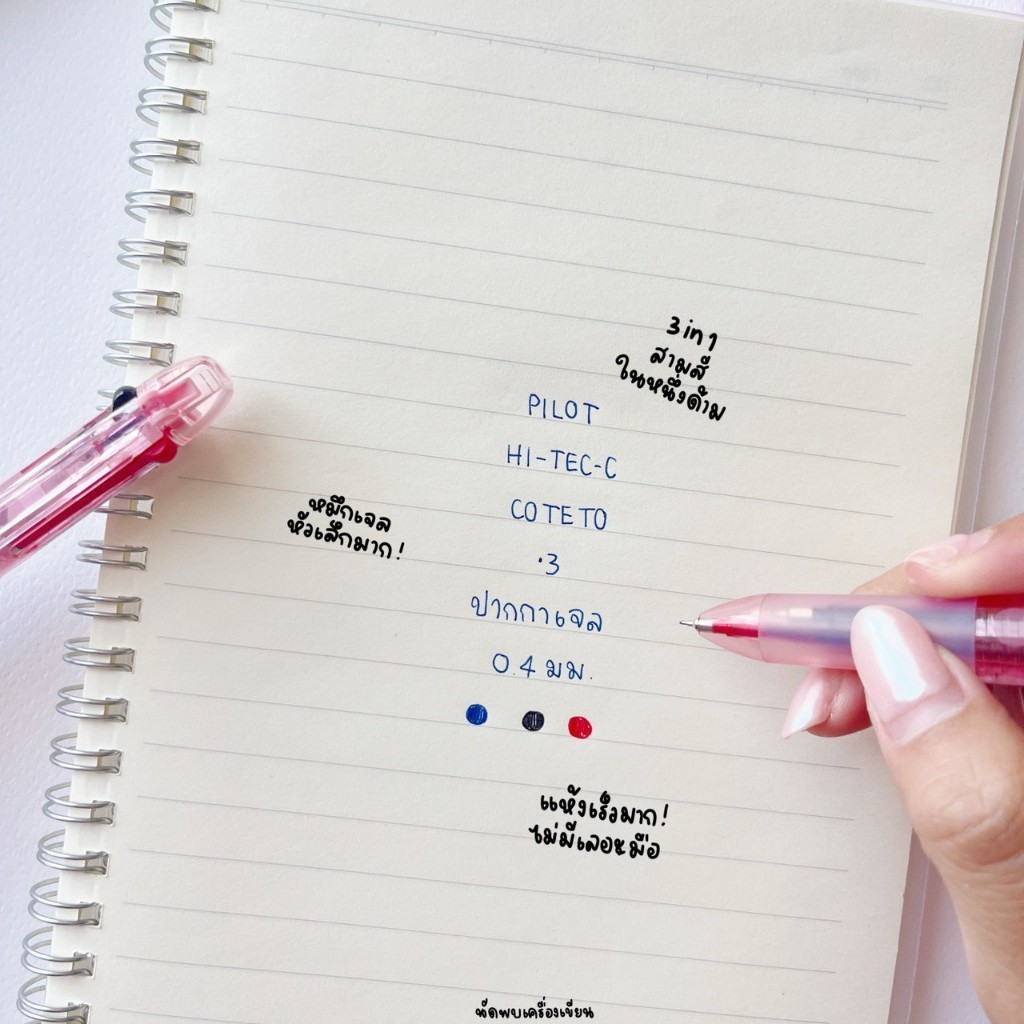 3 in 1
สามสี
ในหนึ่งด้าม
PILOT
HI-TEC-C
COTETO
หมึกเจล
หัวเล็กมาก!
.3
ปากกาเจล
0.4 มม.
แห้งเร็วมาก!
ไม่มีเลอะมือ
นัดพบเครื่องเขียน